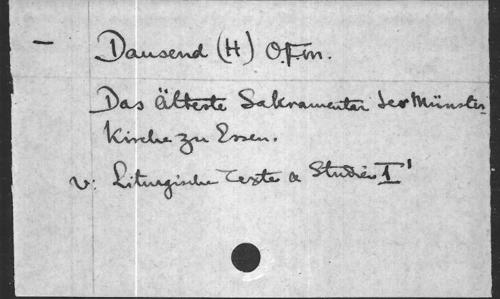 — Dausend (H) O.F.m.
Das älteste Sakramentar der Münster-
Kirche zu Essen.
v: Liturgische Texte & Studien I¹